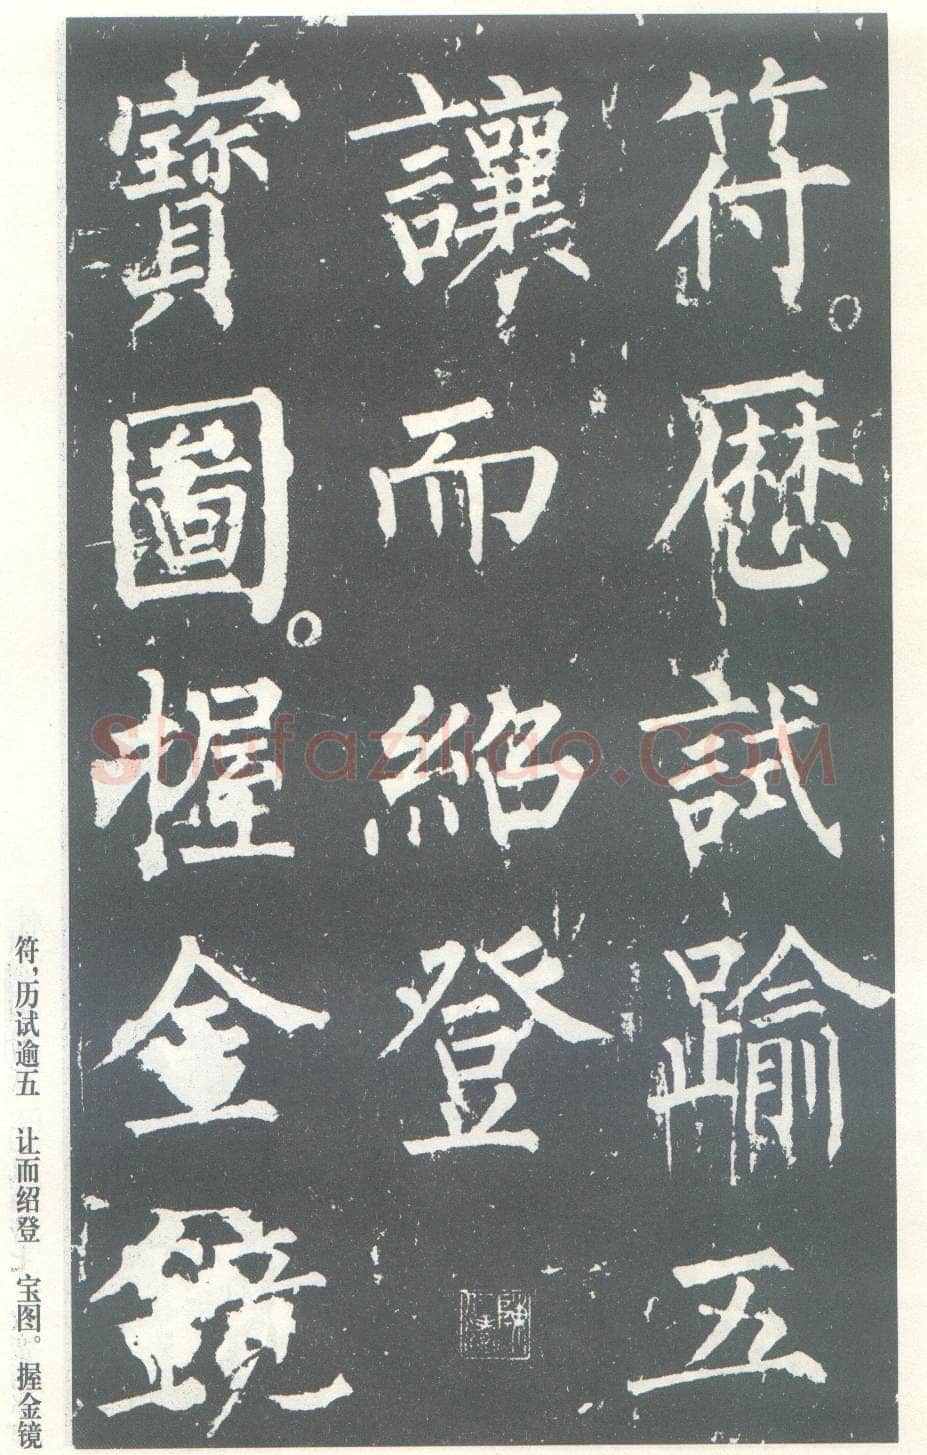 符。歷試踰五
讓而紹登
寶圖。握金鏡
符，历试逾五　让而绍登　宝图。握金镜
Shufaziliao.COM